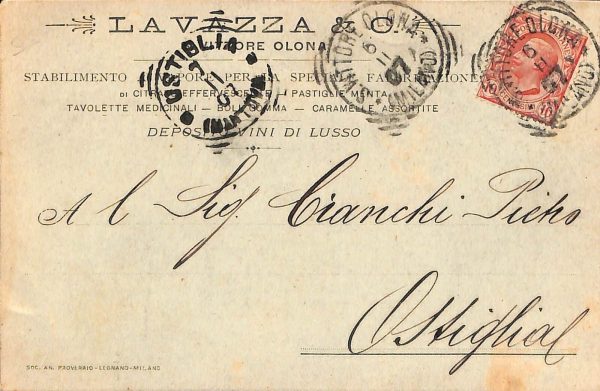 LAVAZZA & C.
VITTORE OLONA
STABILIMENTO A VAPORE PER LA SPECIALE FABBRICAZIONE
DI CITRATO EFFERVESCENTE - PASTIGLIE MENTA
TAVOLETTE MEDICINALI - BOLI GOMMA - CARAMELLE ASSORTITE
DEPOSITO VINI DI LUSSO
OSTIGLIA
7 11
(MANTOVA)
S. VITTORE OLONA
6 11 07
(MILANO)
S. VITTORE OLONA
6 11 07
(MILANO)
Al Sig. Cianchi Pietro
Ostiglia
SOC. AN. PROVERBIO-LEGNANO-MILANO